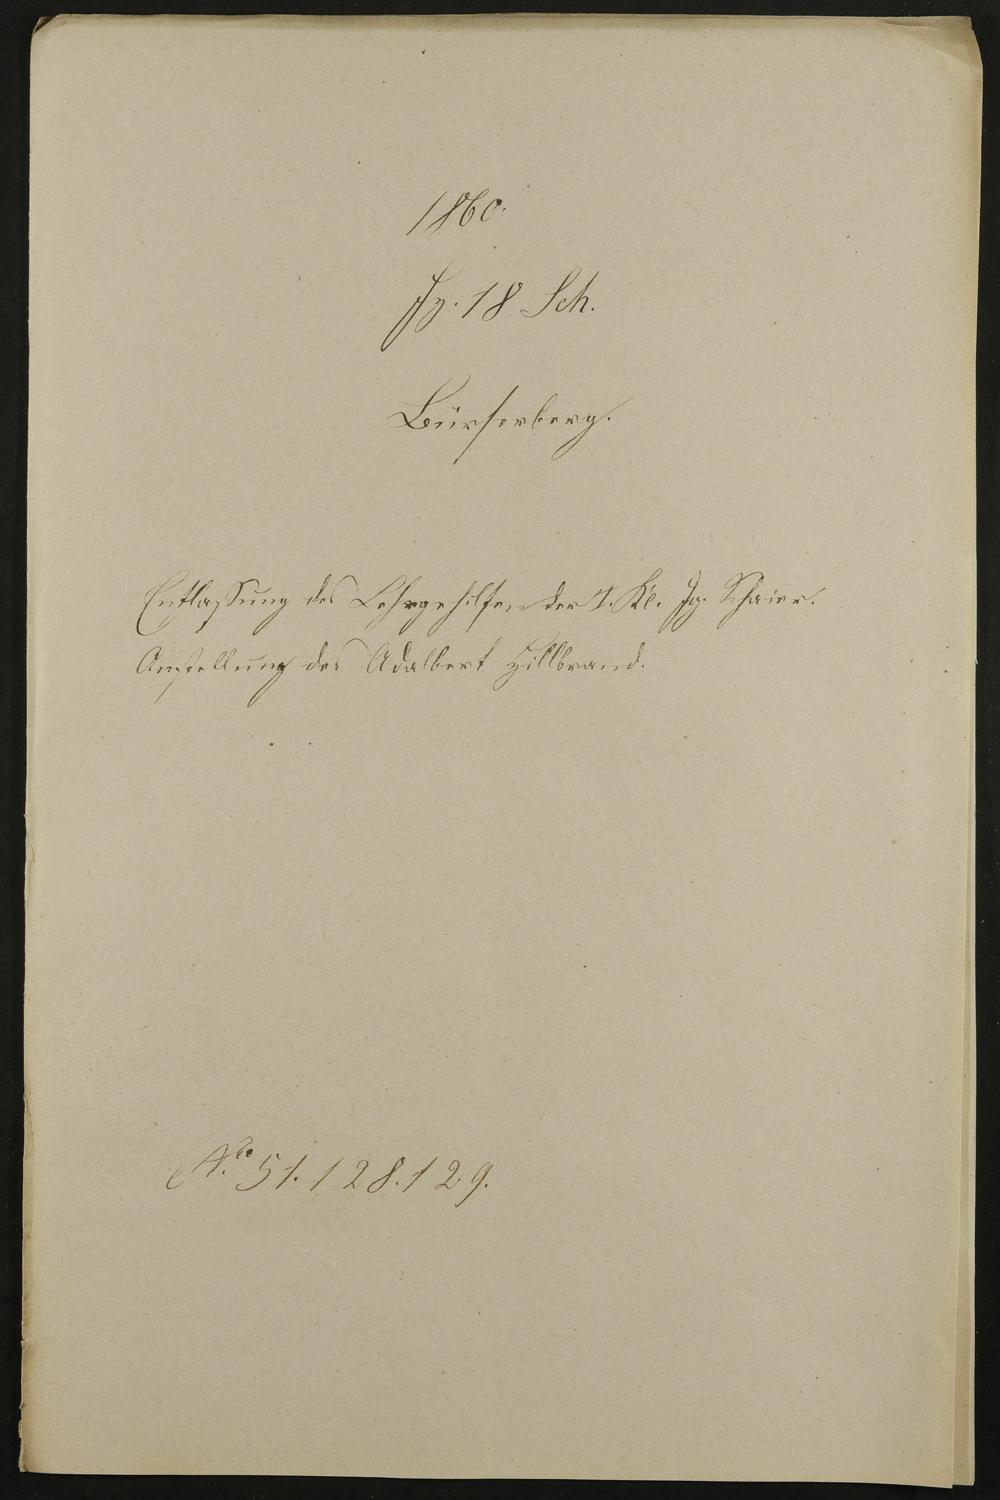 1860.
Fz. 18 Sch.
Bürserberg.
Entlassung des Lehrgehilfen der I. Kl. Jg. Schaier.
Anstellung des Adalbert Hillbrand.
No 51. 128. 129.